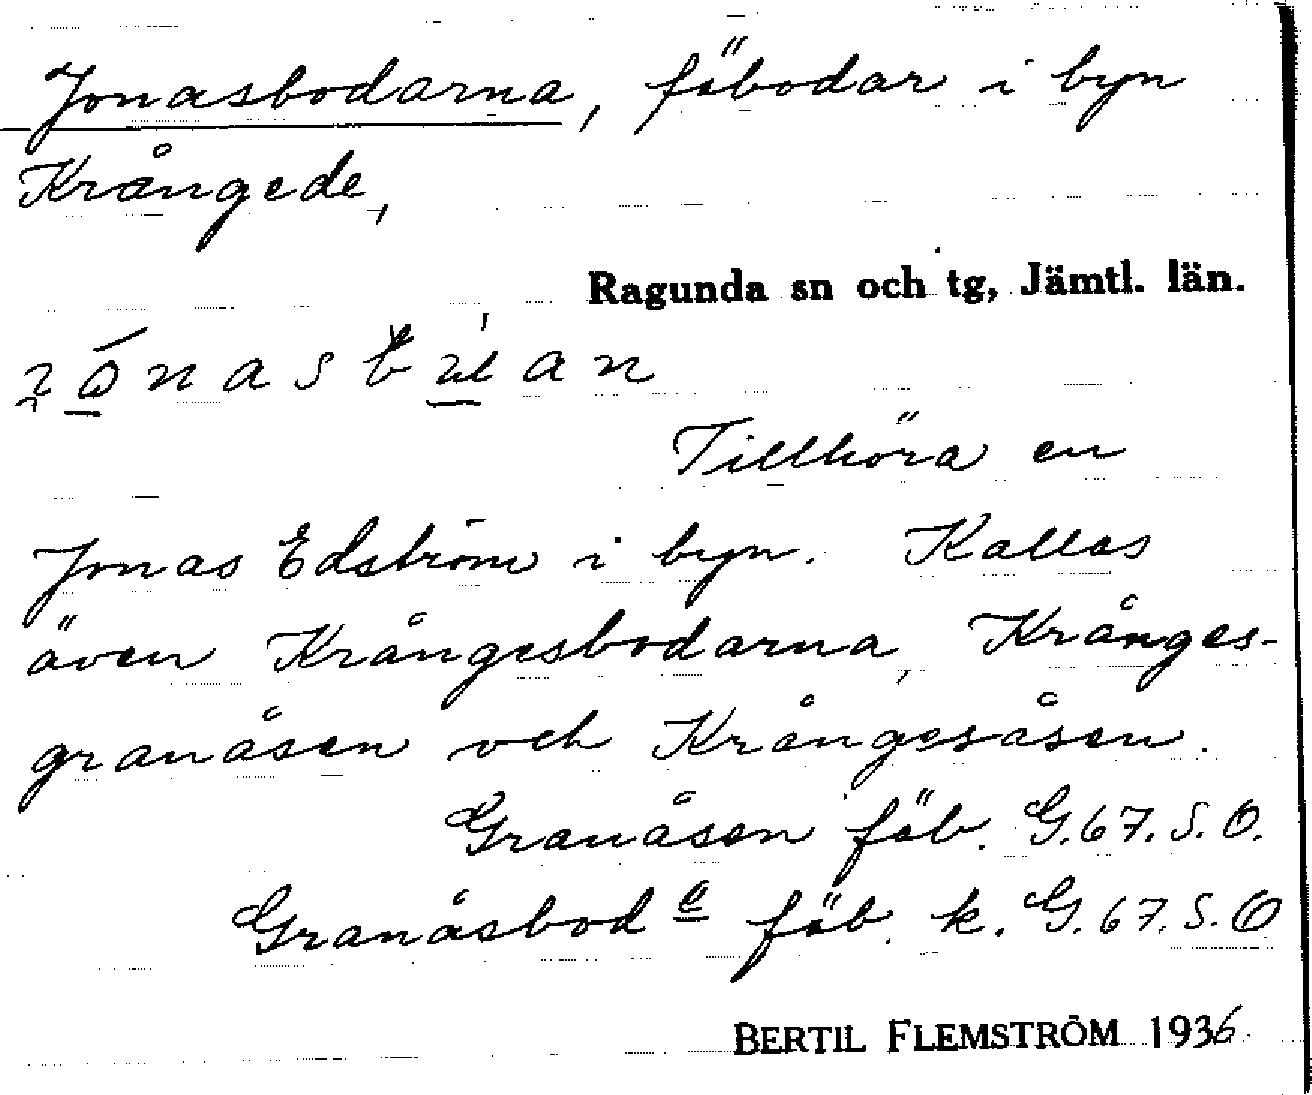 Jonasbodarna, fäbodar i byn
Krångede,
Ragunda sn och tg, Jämtl. län.
Tillhöra en
Jonas Edström i byn. Kallas
även Krångesbodarna, Krånges-
granåsen och Krångesåsen.
Granåsen fäb. G.67.S.O.
Granåsbod a fäb. k. G.67.S.O
BERTIL FLEMSTRÖM 1936